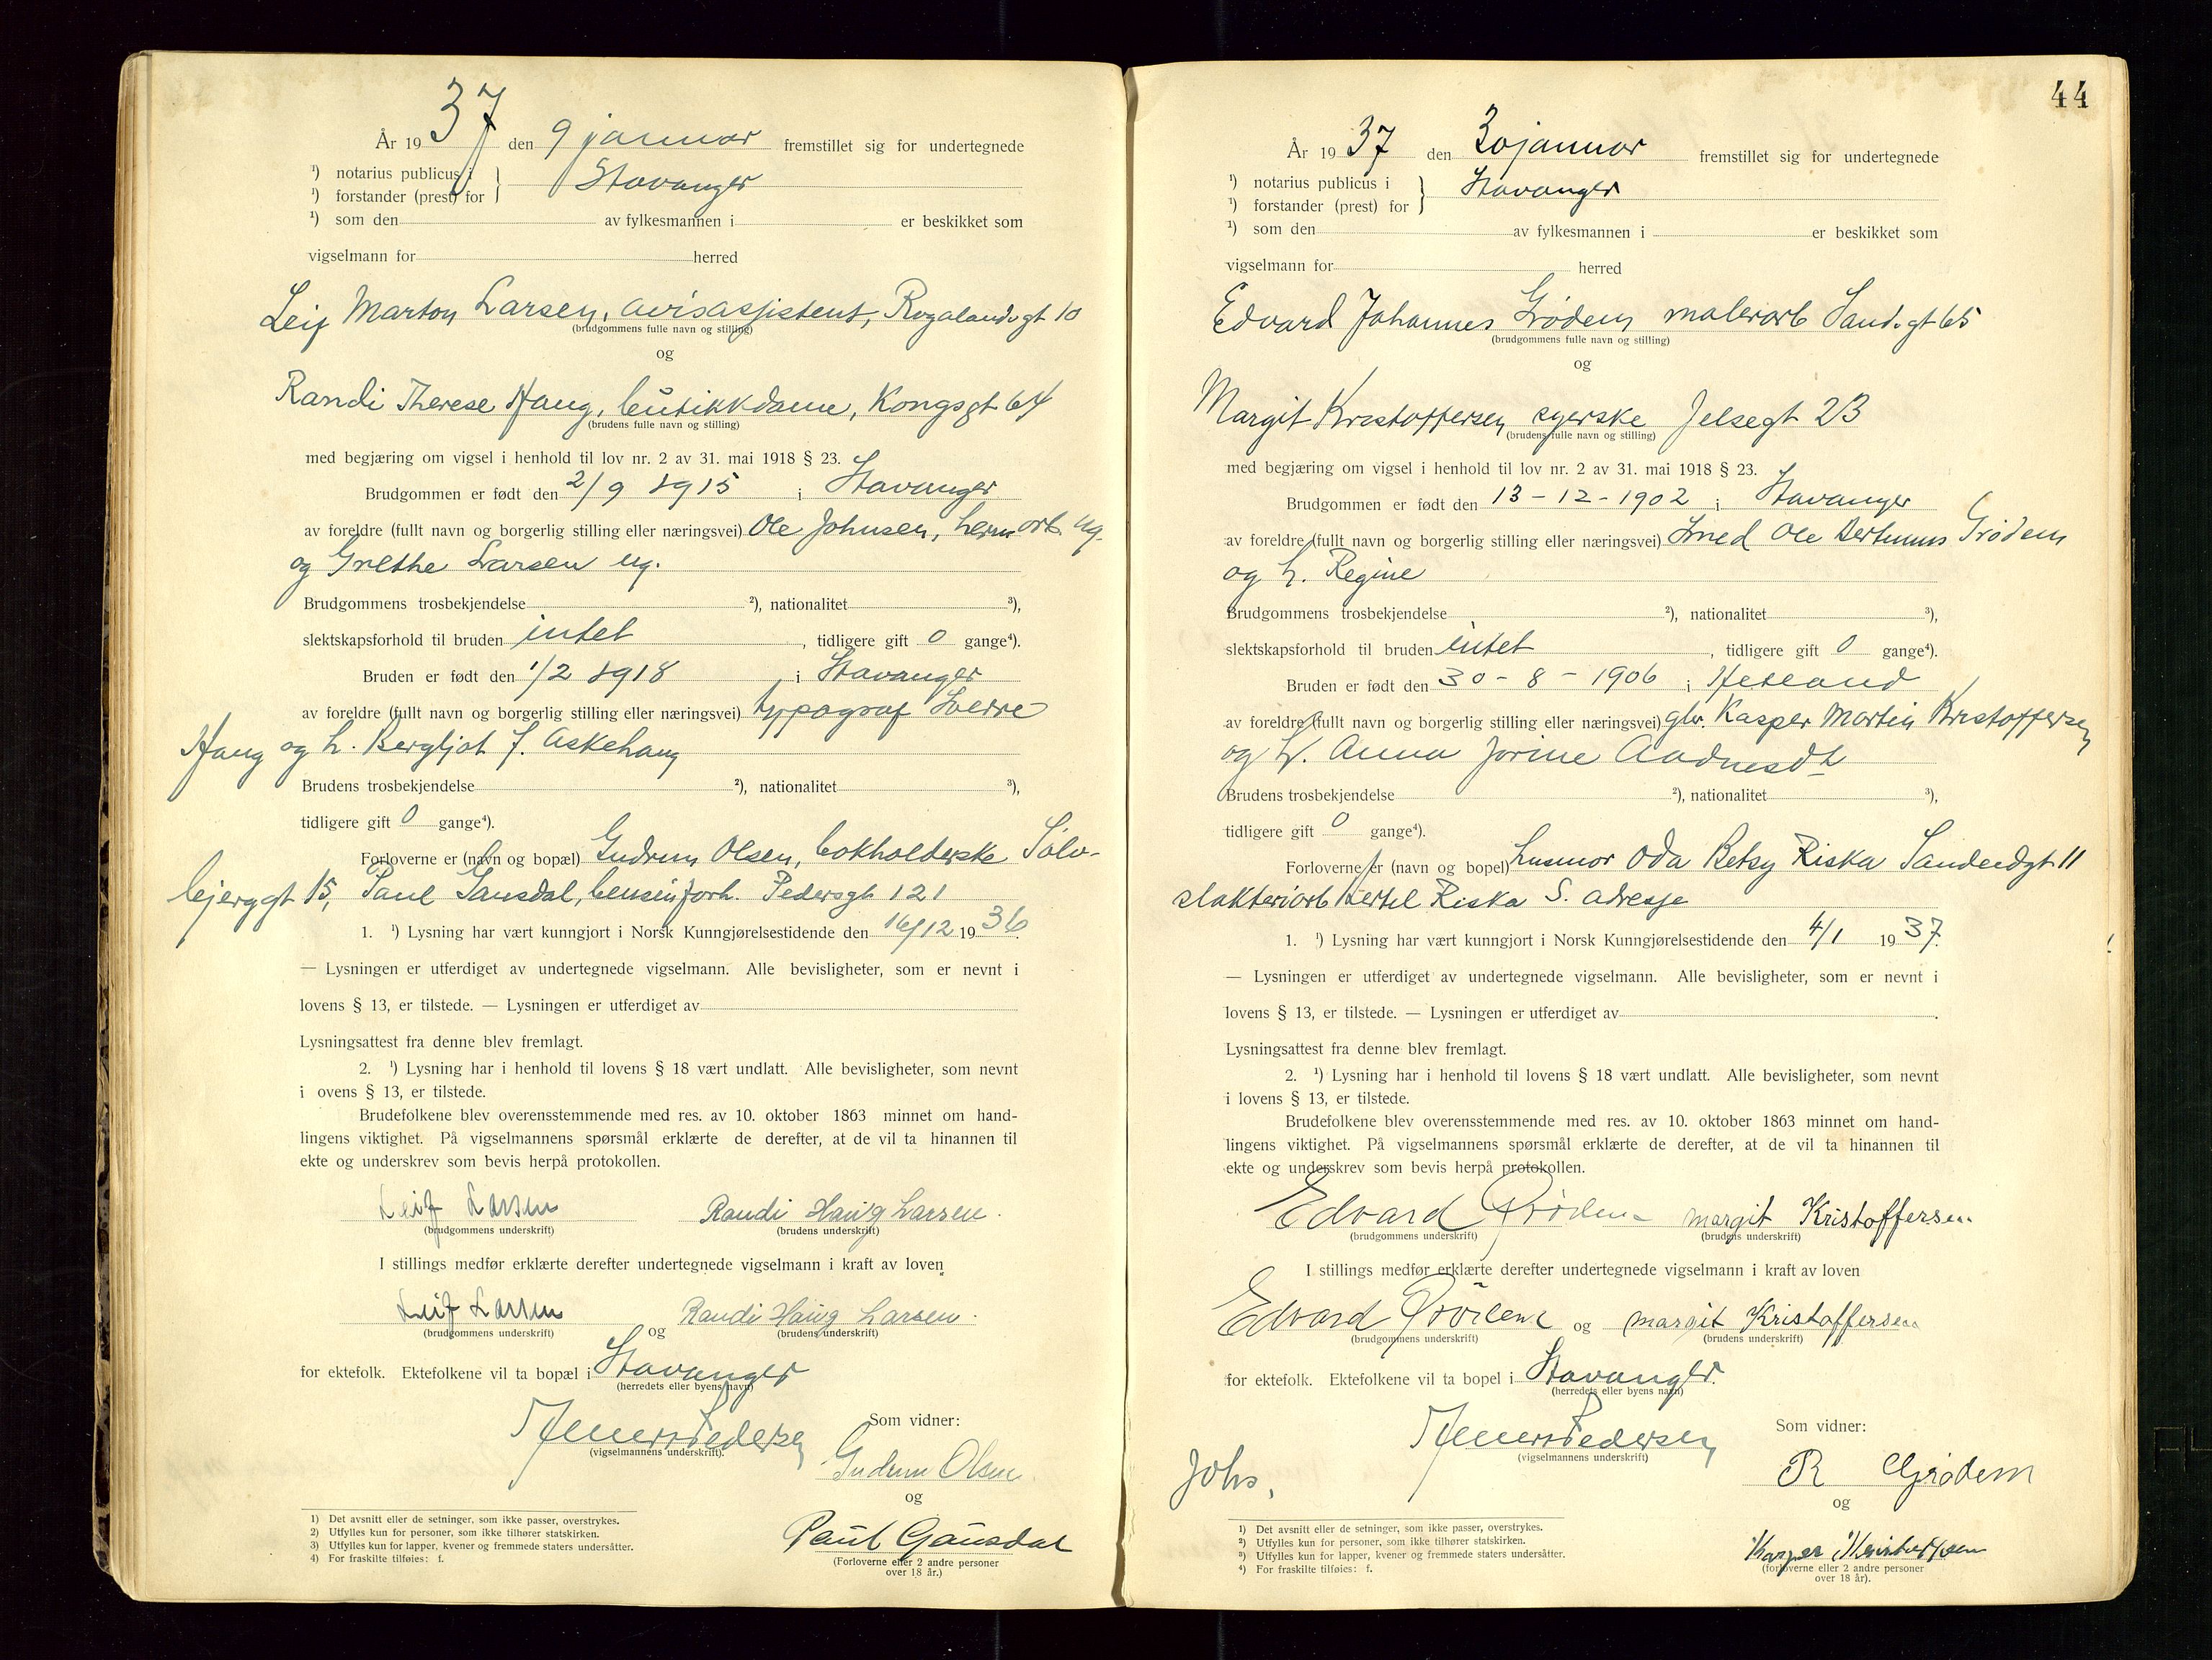 År 1937 den 9 januar fremstillet sig for undertegnede
¹) notarius publicus i
¹) forstander (prest) for } Stavanger
¹) som den av fylkesmannen i er beskikket som
vigselmann for herred
Leif Marton Larsen, avisassistent, Rogalandsgt 10
(brudgommens fulle navn og stilling)
og
Randi Therese Haug, butikkdame, Kongsgt 64
(brudens fulle navn og stilling)
med begjæring om vigsel i henhold til lov nr. 2 av 31. mai 1918 § 23.
Brudgommen er født den 2/9 1915 i Stavanger
av foreldre (fullt navn og borgerlig stilling eller næringsvei) Ole Johnsen, herm arb. ug.
og Grethe Larsen ug.
Brudgommens trosbekjendelse ²), nationalitet ³),
slektskapsforhold til bruden intet, tidligere gift 0 gange⁴).
Bruden er født den 1/2 1918 i Stavanger
av foreldre (fullt navn og borgerlig stilling eller næringsvei) typograf Sverre
Haug og h. Bergljot f. Askehaug
Brudens trosbekjendelse ²), nationalitet ³),
tidligere gift 0 gange⁴).
Forloverne er (navn og bopæl) Gudrun Olsen, bokholderske Sølv-
bjerggt 15, Paul Gausdal, bensinforh. Pedersgt 121
1. ¹) Lysning har vært kunngjort i Norsk Kunngjørelsestidende den 16/12 1936.
— Lysningen er utferdiget av undertegnede vigselmann. Alle bevisligheter, som er nevnt i
lovens § 13, er tilstede. — Lysningen er utferdiget av
Lysningsattest fra denne blev fremlagt.
2. ¹) Lysning har i henhold til lovens § 18 vært undlatt. Alle bevisligheter, som nevnt
i ovens § 13, er tilstede.
Brudefolkene blev overensstemmende med res. av 10. oktober 1863 minnet om hand-
lingens viktighet. På vigselmannens spørsmål erklærte de derefter, at de vil ta hinannen til
ekte og underskrev som bevis herpå protokollen.
Leif Larsen Randi Haug Larsen.
(brudgommens underskrift) (brudens underskrift)
I stillings medfør erklærte derefter undertegnede vigselmann i kraft av loven
Leif Larsen og Randi Haug Larsen.
(brudgommens underskrift) (brudens underskrift)
for ektefolk. Ektefolkene vil ta bopæl i Stavanger
(herredets eller byens navn)
Som vidner:
(vigselmannens underskrift).
Gudrun Olsen
og
Paul Gausdal
(Forloverne eller 2 andre personer
over 18 år.)
1) Det avsnitt eller de setninger, som ikke passer, overstrykes.
2) Utfylles kun for personer, som ikke tilhører statskirken.
3) Utfylles kun for lapper, kvener og fremmede staters undersåtter.
4) For fraskilte tilføies: f.
44
År 1937 den 30 januar fremstillet sig for undertegnede
¹) notarius publicus i
¹) forstander (prest) for } Stavanger
¹) som den av fylkesmannen i er beskikket som
vigselmann for herred
Edvard Johannes Grødem malerarb Sandsgt 65
(brudgommens fulle navn og stilling)
og
Margit Kristoffersen syerske Jelsegt 23
(brudens fulle navn og stilling)
med begjæring om vigsel i henhold til lov nr. 2 av 31. mai 1918 § 23.
Brudgommen er født den 13-12-1902 i Stavanger
av foreldre (fullt navn og borgerlig stilling eller næringsvei) Smed Ole Grødem
og h. Regine
Brudgommens trosbekjendelse ²), nationalitet ³),
slektskapsforhold til bruden intet, tidligere gift 0 gange⁴).
Bruden er født den 30-8-1906 i Hetland
av foreldre (fullt navn og borgerlig stilling eller næringsvei) Kasper Martin Kristoffersen
og h. Anna Jorine Aadnesdt
Brudens trosbekjendelse ²), nationalitet ³),
tidligere gift 0 gange⁴).
Forloverne er (navn og bopel) husmor Oda Betsy Riska Sandeidgt 11
slakteriarb Bertel Riska S. adresse
1. ¹) Lysning har vært kunngjort i Norsk Kunngjørelsestidende den 4/1 1937.
— Lysningen er utferdiget av undertegnede vigselmann. Alle bevisligheter, som er nevnt i
lovens § 13, er tilstede. — Lysningen er utferdiget av
Lysningsattest fra denne blev fremlagt.
2. ¹) Lysning har i henhold til lovens § 18 vært undlatt. Alle bevisligheter, som nevnt
i lovens § 13, er tilstede.
Brudefolkene blev overensstemmende med res. av 10. oktober 1863 minnet om hand-
lingens viktighet. På vigselmannens spørsmål erklærte de derefter, at de vil ta hinannen til
ekte og underskrev som bevis herpå protokollen.
Edvard Grødem Margit Kristoffersen
(brudgommens underskrift) (brudens underskrift)
I stillings medfør erklærte derefter undertegnede vigselmann i kraft av loven
Edvard Grödem og Margit Kristoffersen
(brudgommens underskrift) (brudens underskrift)
for ektefolk. Ektefolkene vil ta bopel i Stavanger.
(herredets eller byens navn)
Som vidner:
(vigselmannens underskrift)
Johs. R Grödem
og
Kasper Kristoffersen
(forloverne eller 2 andre personer
over 18 år).
1) Det avsnitt eller de setninger, som ikke passer, overstrykes.
²) Utfylles kun for personer, som ikke tilhører statskirken.
³) Utfylles kun for lapper, kvener og fremmede staters undersåtter.
⁴) For fraskilte tilføies: f.